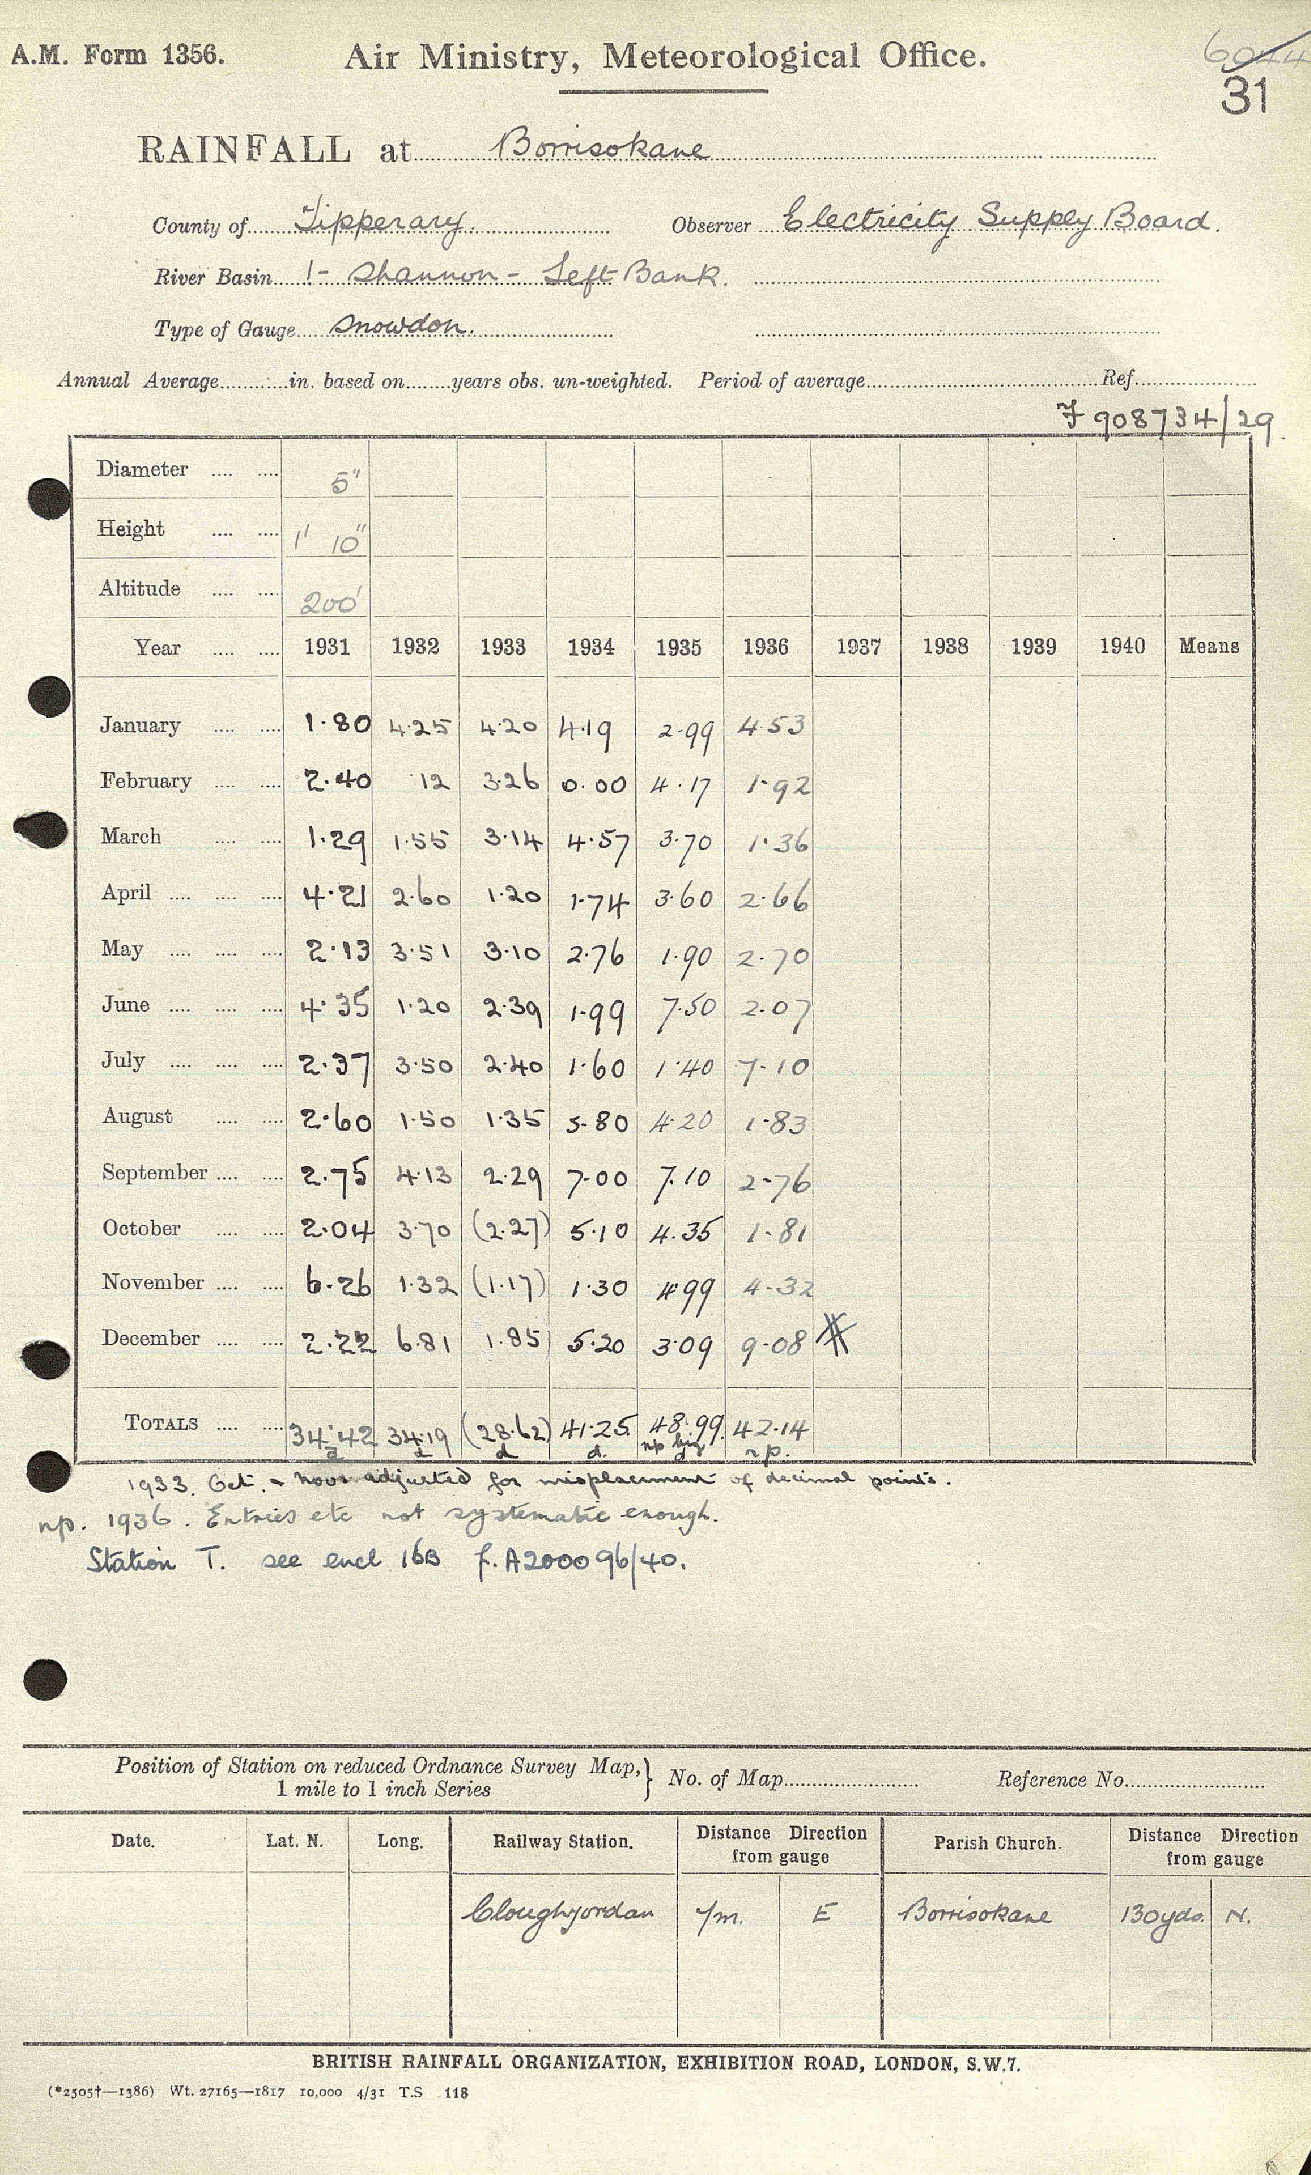 A.M. Form 1356. Air Ministry, Meteorological Office. 6044
31
RAINFALL at Borrisokane
County of Tipperary. Observer Electricity Supply Board.
River Basin 1- Shannon - Left Bank.
Type of Gauge Snowdon.
Annual Average in. based on years obs. un-weighted. Period of average Ref.
F 908734/29
Diameter 5"
Height 1' 10"
Altitude 200'
Year 1931 1932 1933 1934 1935 1936 1937 1938 1939 1940 Means
January 1.80 4.25 4.20 4.19 2.99 4.53
February 2.40 .12 3.26 0.00 4.17 1.92
March 1.29 1.55 3.14 4.57 3.70 1.36
April 4.21 2.60 1.20 1.74 3.60 2.66
May 2.13 3.51 3.10 2.76 1.90 2.70
June 4.35 1.20 2.39 1.99 7.50 2.07
July 2.37 3.50 2.40 1.60 1.40 7.10
August 2.60 1.50 1.35 5.80 4.20 1.83
September 2.75 4.13 2.29 7.00 7.10 2.76
October 2.04 3.70 (2.27) 5.10 4.35 1.81
November 6.26 1.32 (1.17) 1.30 4.99 4.32
December 2.22 6.81 1.85 5.20 3.09 9.08
TOTALS 34.42 34.19 (28.62) 41.25 48.99 42.14
d d d np n.p.
1933. Oct. - Nov. adjusted for misplacement of decimal points.
np. 1936. Entries etc not systematic enough.
Station T. see encl 16B f. A200096/40.
Position of Station on reduced Ordnance Survey Map,} No. of Map Reference No.
1 mile to 1 inch Series
Date. Lat. N. Long. Railway Station. Distance Direction from gauge Parish Church. Distance Direction from gauge
Cloughjordan 7m. E Borrisokane 130yds. N.
BRITISH RAINFALL ORGANIZATION, EXHIBITION ROAD, LONDON, S.W.7.
(*2505†—1386) Wt. 27165—1817 10,000 4/31 T.S 118